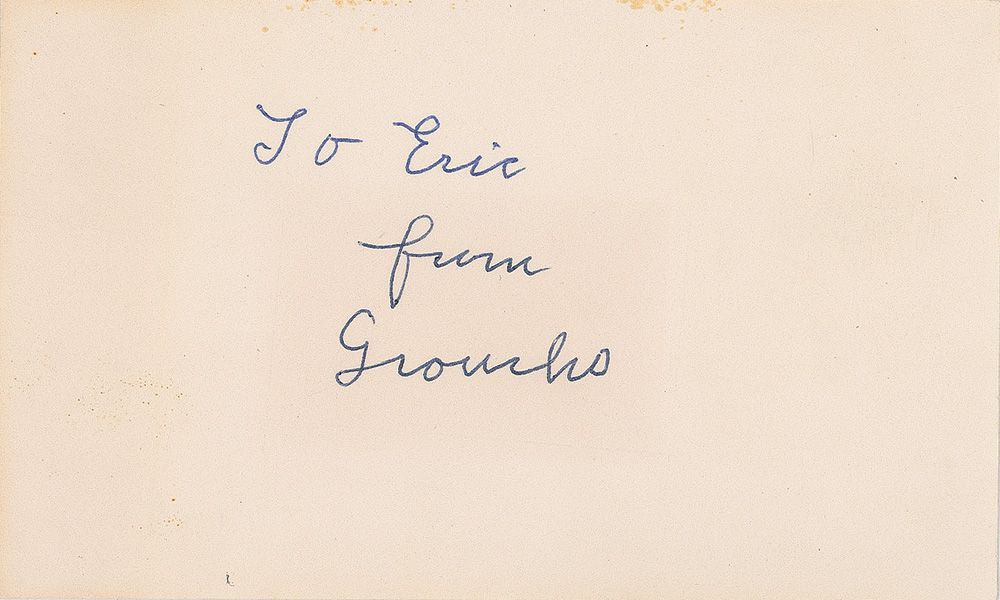 To Eric
from
Groucho